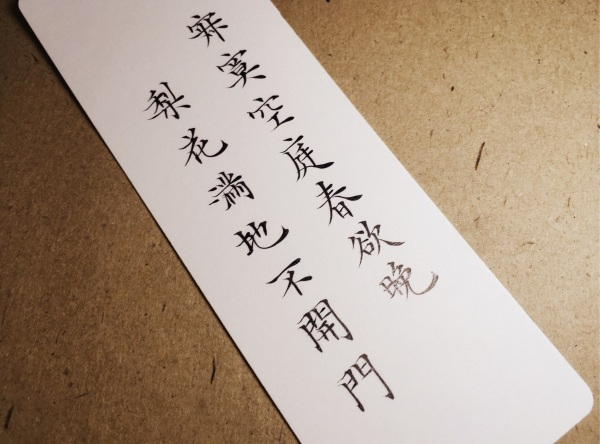 寂寞空庭春欲晚
梨花满地不開門